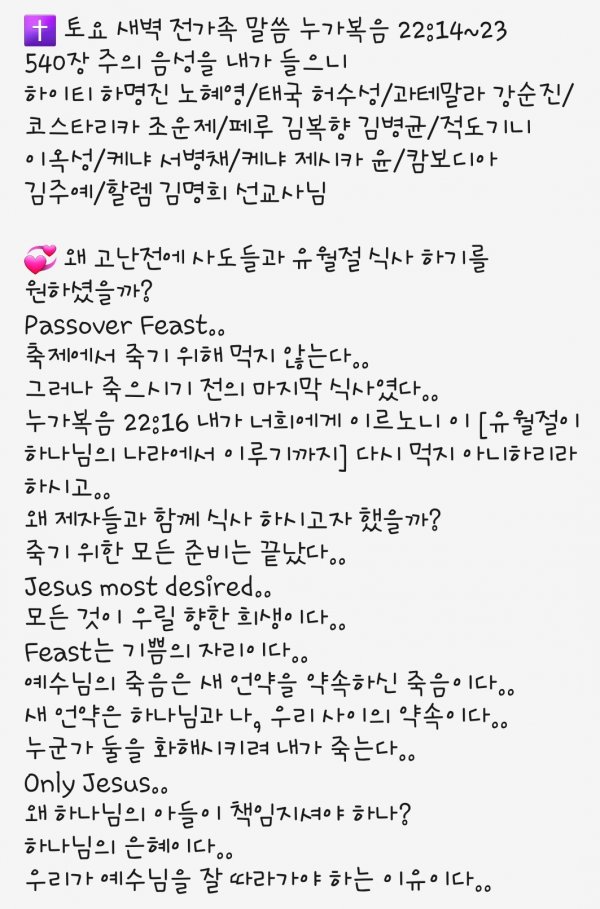 ✝️ 토요 새벽 전가족 말씀 누가복음 22:14~23
540장 주의 음성을 내가 들으니
하이티 하명진 노혜영/태국 허수성/과테말라 강순진/
코스타리카 조운제/페루 김복향 김병균/적도기니
이옥성/케냐 서병채/케냐 제시카 윤/캄보디아
김주예/할렘 김명희 선교사님
💞 왜 고난전에 사도들과 유월절 식사 하기를
원하셨을까?
Passover Feast..
축제에서 죽기 위해 먹지 않는다..
그러나 죽으시기 전의 마지막 식사였다..
누가복음 22:16 내가 너희에게 이르노니 이 [유월절이
하나님의 나라에서 이루기까지] 다시 먹지 아니하리라
하시고..
왜 제자들과 함께 식사 하시고자 했을까?
죽기 위한 모든 준비는 끝났다..
Jesus most desired..
모든 것이 우릴 향한 희생이다..
Feast는 기쁨의 자리이다..
예수님의 죽음은 새 언약을 약속하신 죽음이다..
새 언약은 하나님과 나, 우리 사이의 약속이다..
누군가 둘을 화해시키려 내가 죽는다..
Only Jesus..
왜 하나님의 아들이 책임지셔야 하나?
하나님의 은혜이다..
우리가 예수님을 잘 따라가야 하는 이유이다..